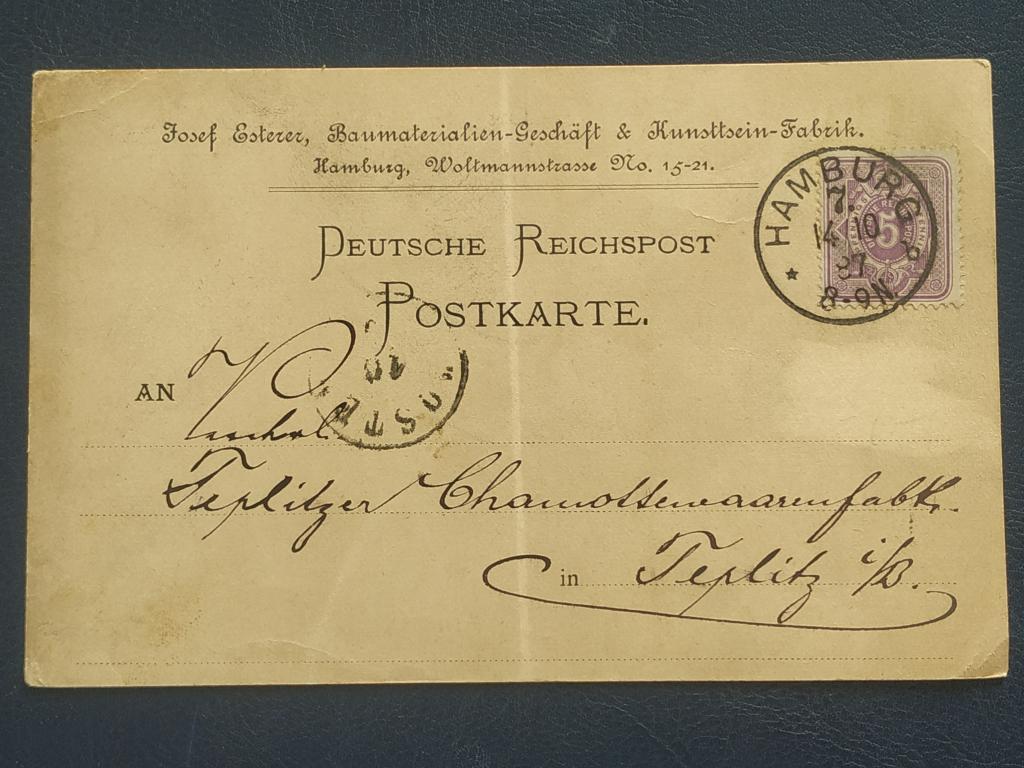 Josef Esterer, Baumaterialien-Geschäft & Kunsttsein-Fabrik.
Hamburg, Woltmannstrasse No. 15-21.
DEUTSCHE REICHSPOST
POSTKARTE.
HAMBURG
7.
14 10
87
8-9N.
5
AN
10
Teplitzer Chamottewaarenfabk.
in Teplitz i/B.